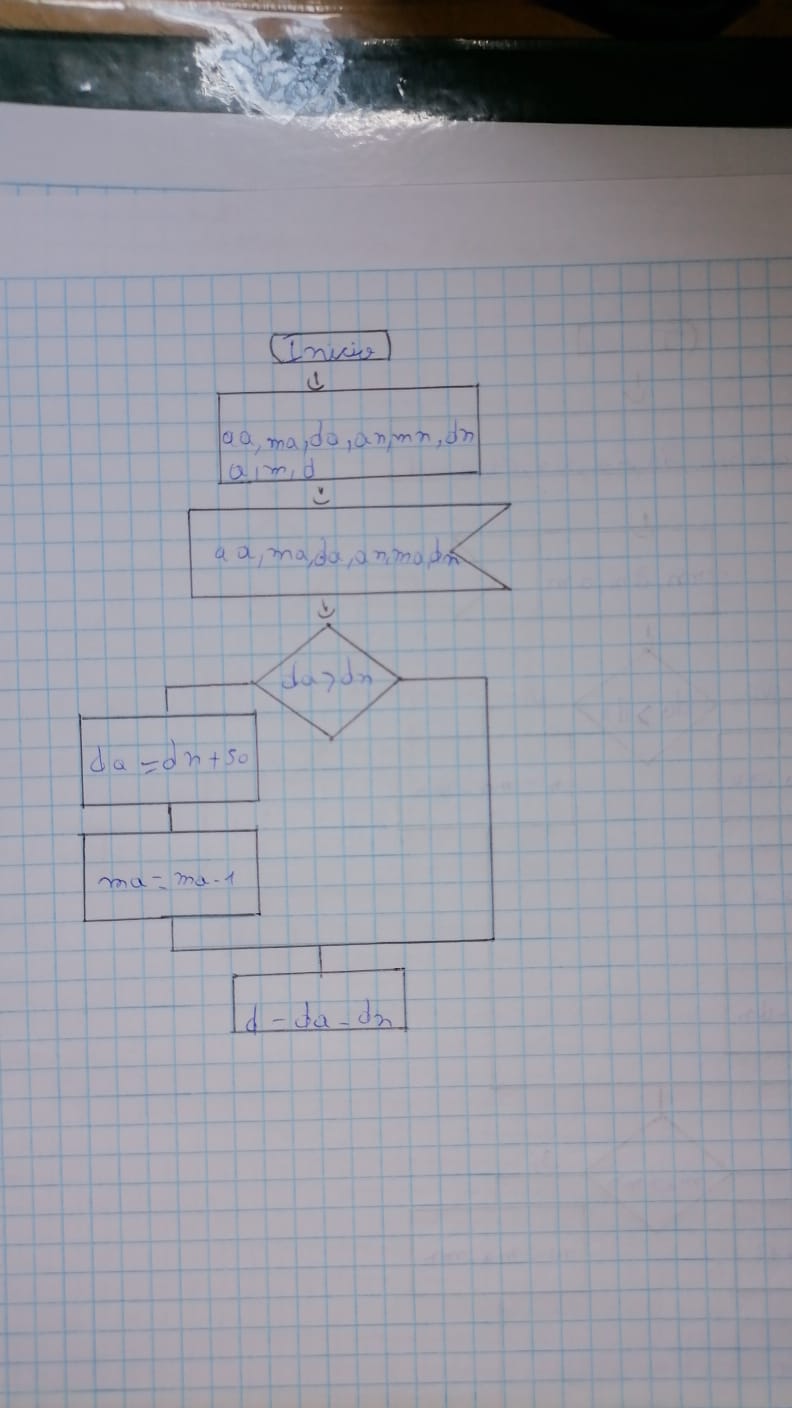 Inicio
aa, ma, da, an, mn, dn
a, m, d
aa, ma, da, an, ma, dn
da > dn
da = dn + 30
ma = ma - 1
d - da - dn